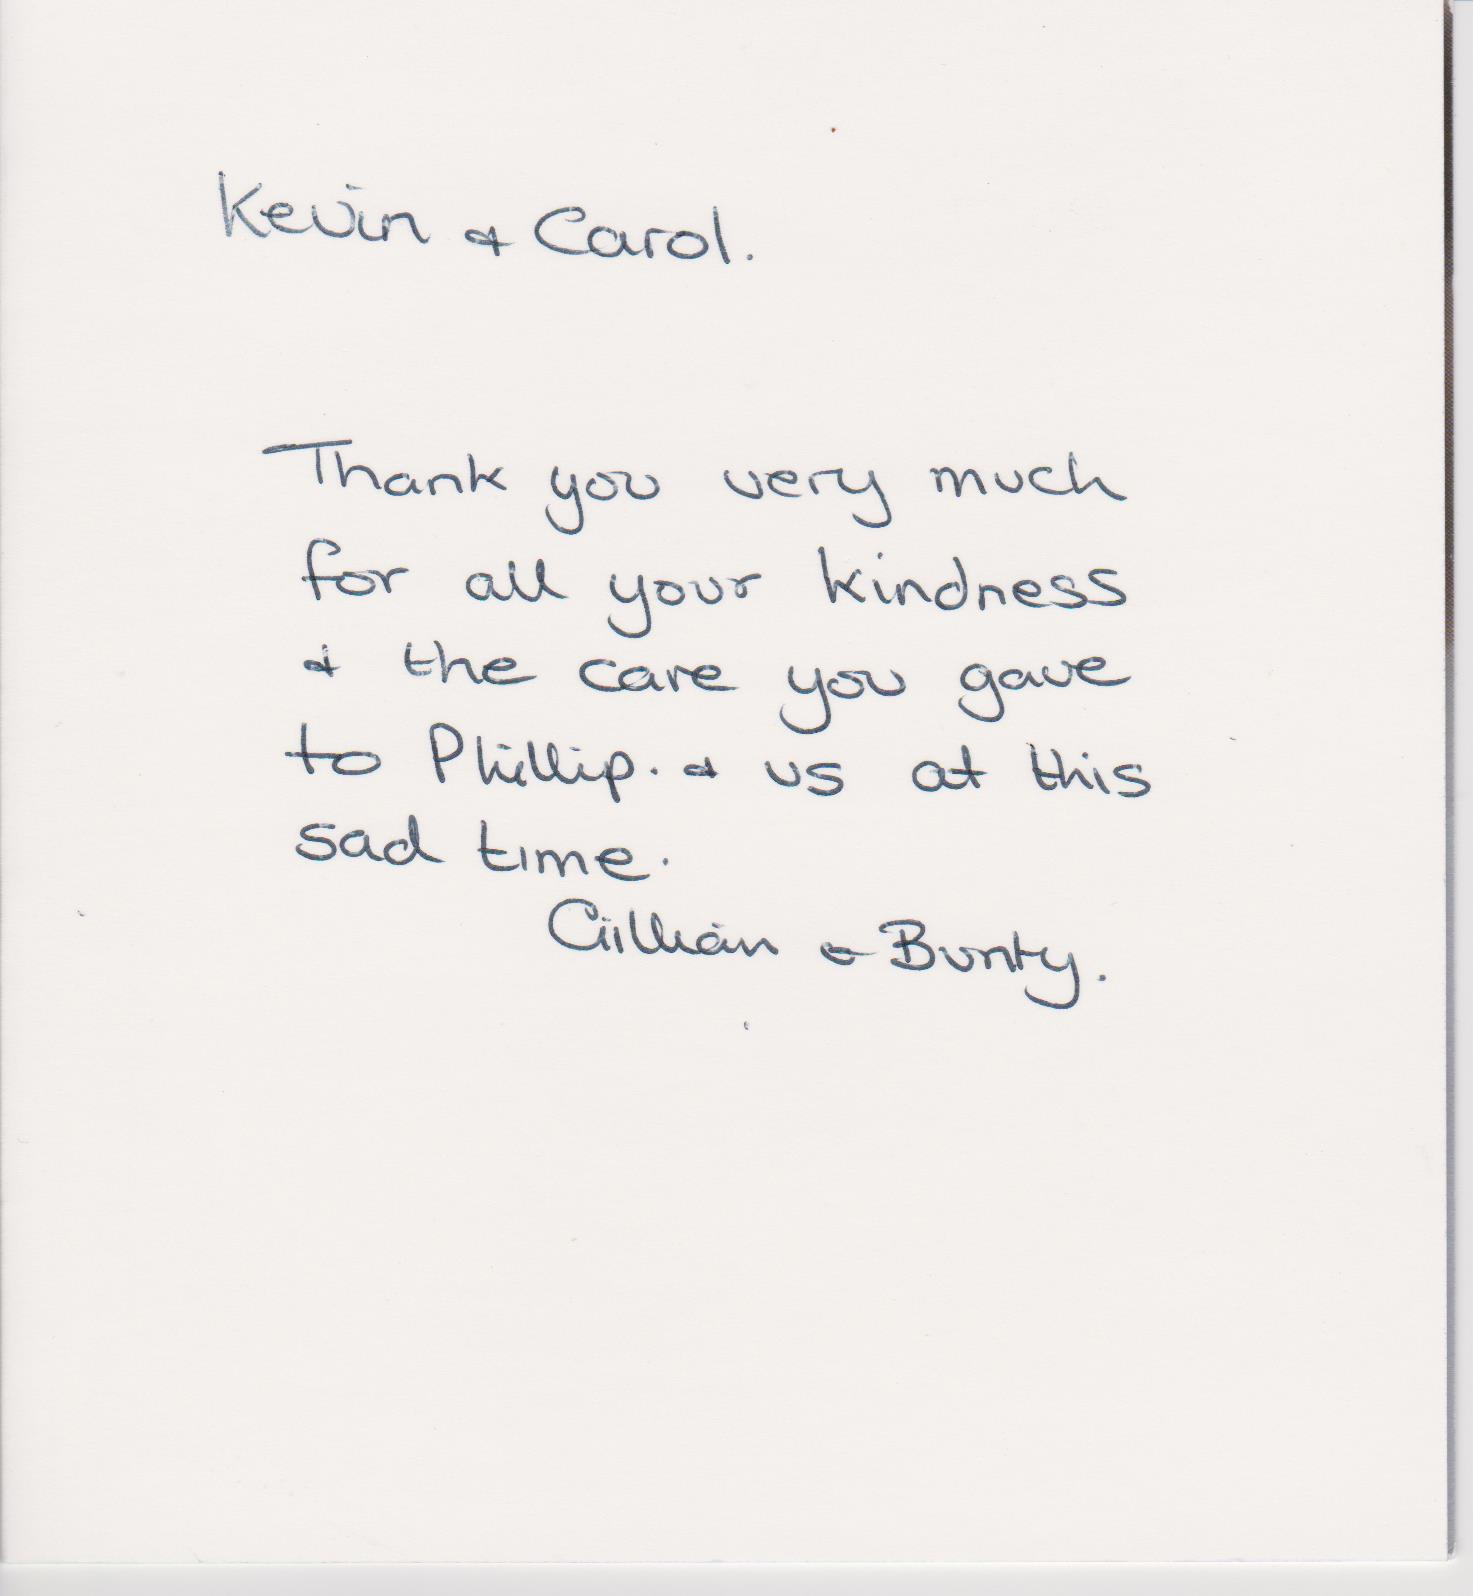 Kevin & Carol.
Thank you very much
for all your kindness
& the care you gave
to Phillip. & us at this
sad time.
Gillian & Bunty.